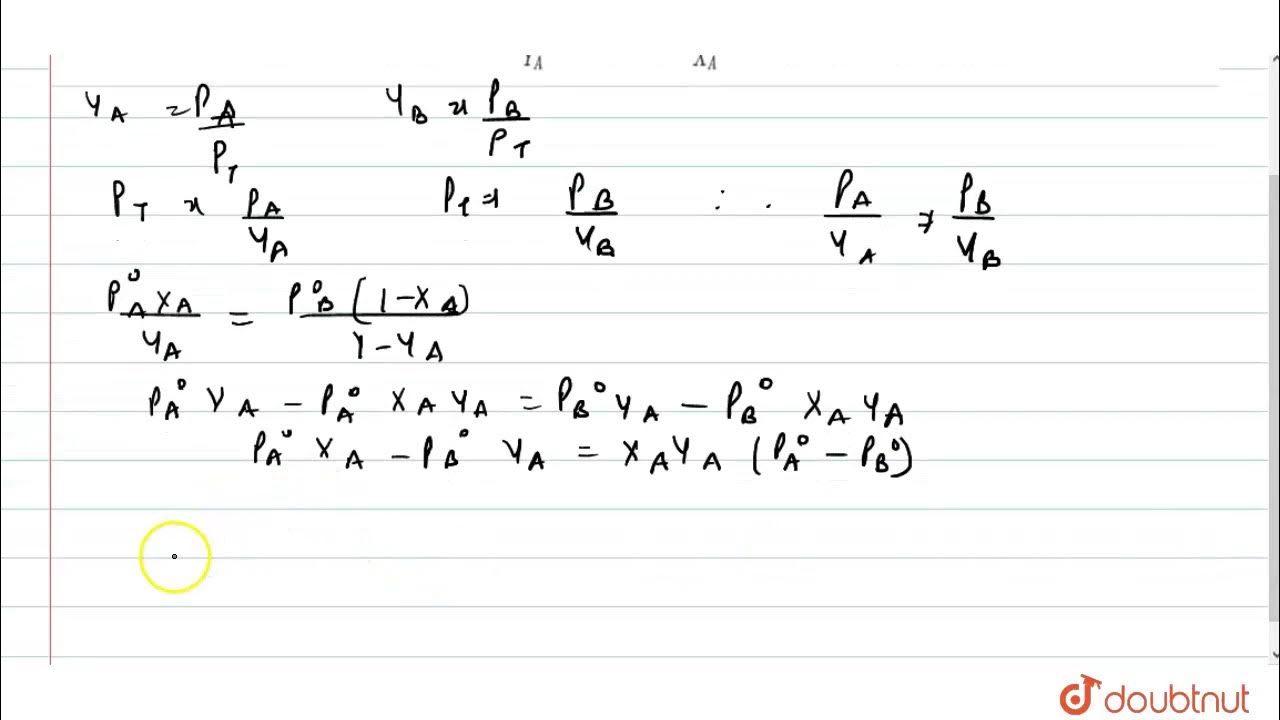 Y_A = P_A/P_T        Y_B = P_B/P_T
P_T = P_A/Y_A        P_T = P_B/Y_B        ∴ P_A/Y_A = P_B/Y_B
P°_A X_A/Y_A = P°_B (1-X_A)/1-Y_A
P_A° Y_A - P_A° X_A Y_A = P_B° Y_A - P_B° X_A Y_A
P_A° X_A - P_B° Y_A = X_A Y_A (P_A° - P_B°)
doubtnut